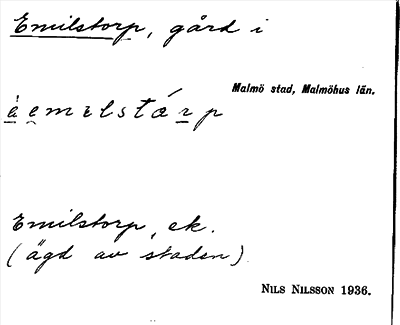 Emilstorp, gård i
Malmö stad, Malmöhus län.
Emilstorp, ek.
(ägd av staden)
NILS NILSSON 1936.